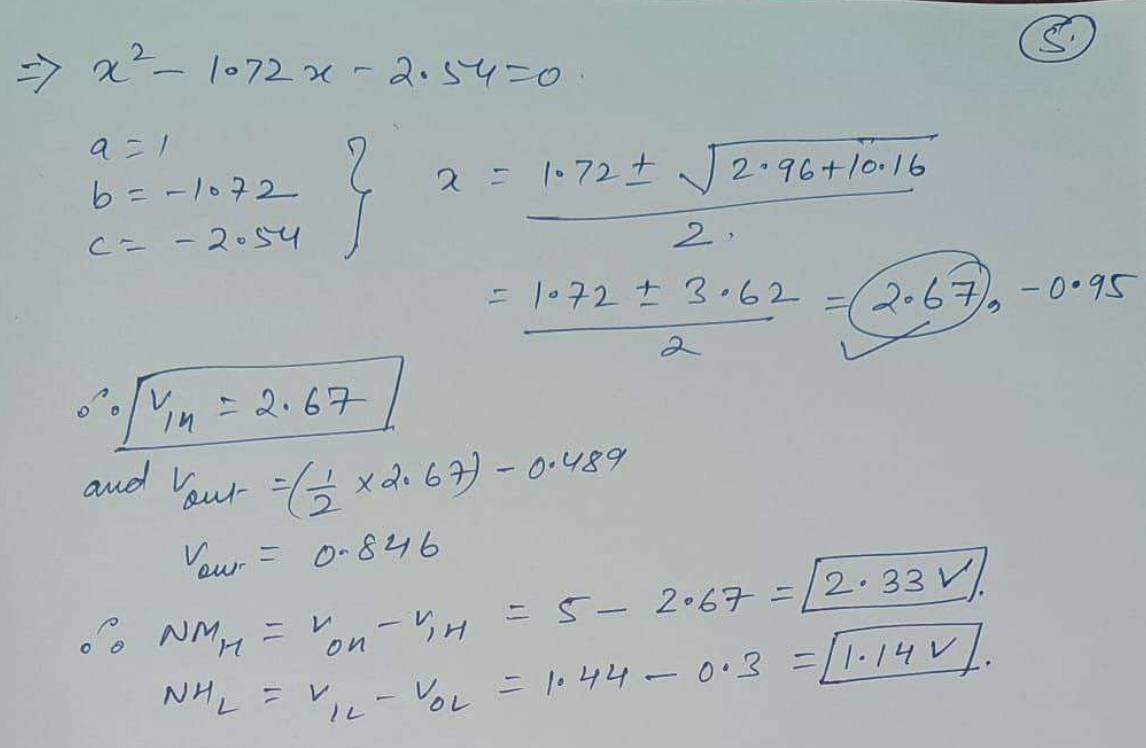 5.
⇒ x² - 1.72x - 2.54 = 0.
a = 1
b = -1.72
c = -2.54
} x = (1.72 ± √(2.96+10.16)) / 2.
= (1.72 ± 3.62) / 2 = 2.67, -0.95
∴ V_IH = 2.67
and V_out = (1/2 × 2.67) - 0.489
V_out = 0.846
∴ NM_H = V_OH - V_IH = 5 - 2.67 = 2.33 V.
NH_L = V_IL - V_OL = 1.44 - 0.3 = 1.14 V.